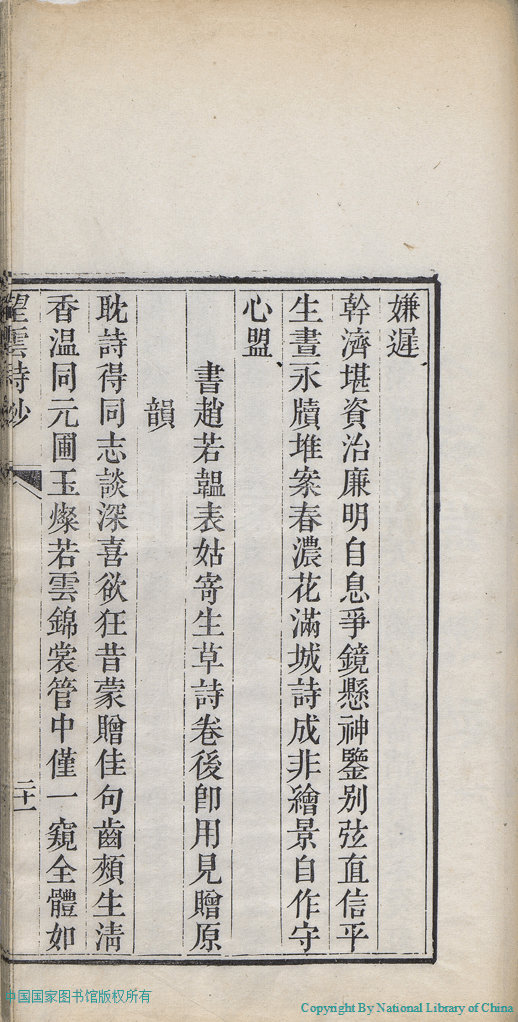 嫌遲
幹濟堪資治廉明自息爭鏡懸神鑒別弦直信平
生晝永牘堆案春濃花滿城詩成非繪景自作守
心盟
書趙若韞表姑寄生草詩卷後卽用見贈原
韻
耽詩得同志談深喜欲狂昔蒙贈佳句齒頰生淸
香温同元圃玉燦若雲錦裳管中僅一窺全體如
望雲詩鈔
二十一
中国国家图书馆版权所有
Copyright By National Library of China